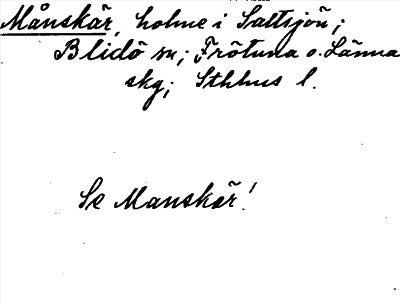 Månskär, holme i Saltsjön;
Blidö sn; Frötuna o. Länna
skg; Sthlms l.
Se Manskär!